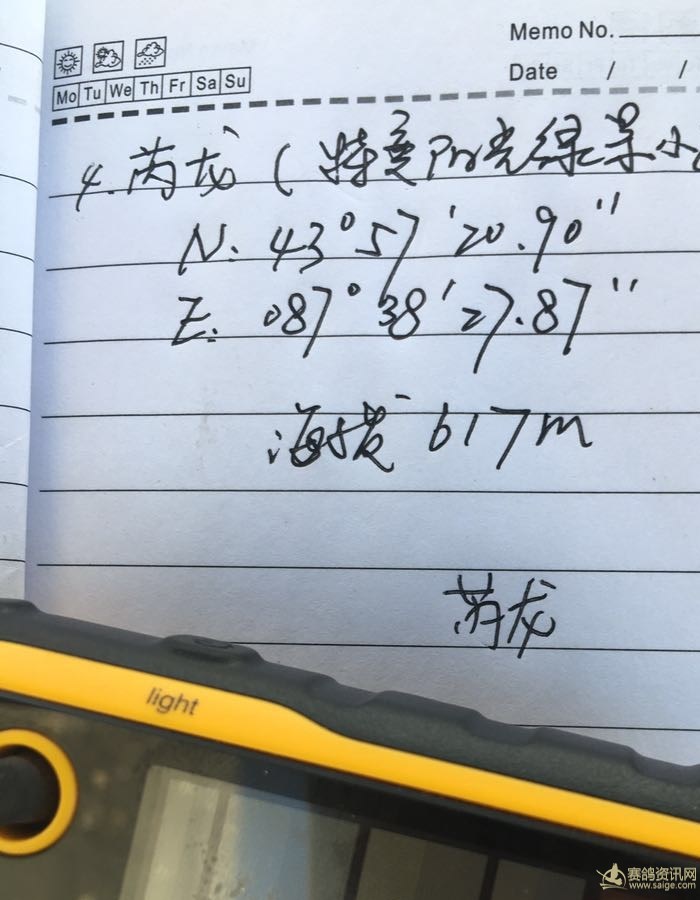 Memo No.
Mo Tu We Th Fr Sa Su
Date / /
4. 芮龙 (特变阳光绿景小
N. 43°57'20.90"
E. 087°38'27.87"
海拔 617m
芮龙
light
赛鸽资讯网
www.saige.com